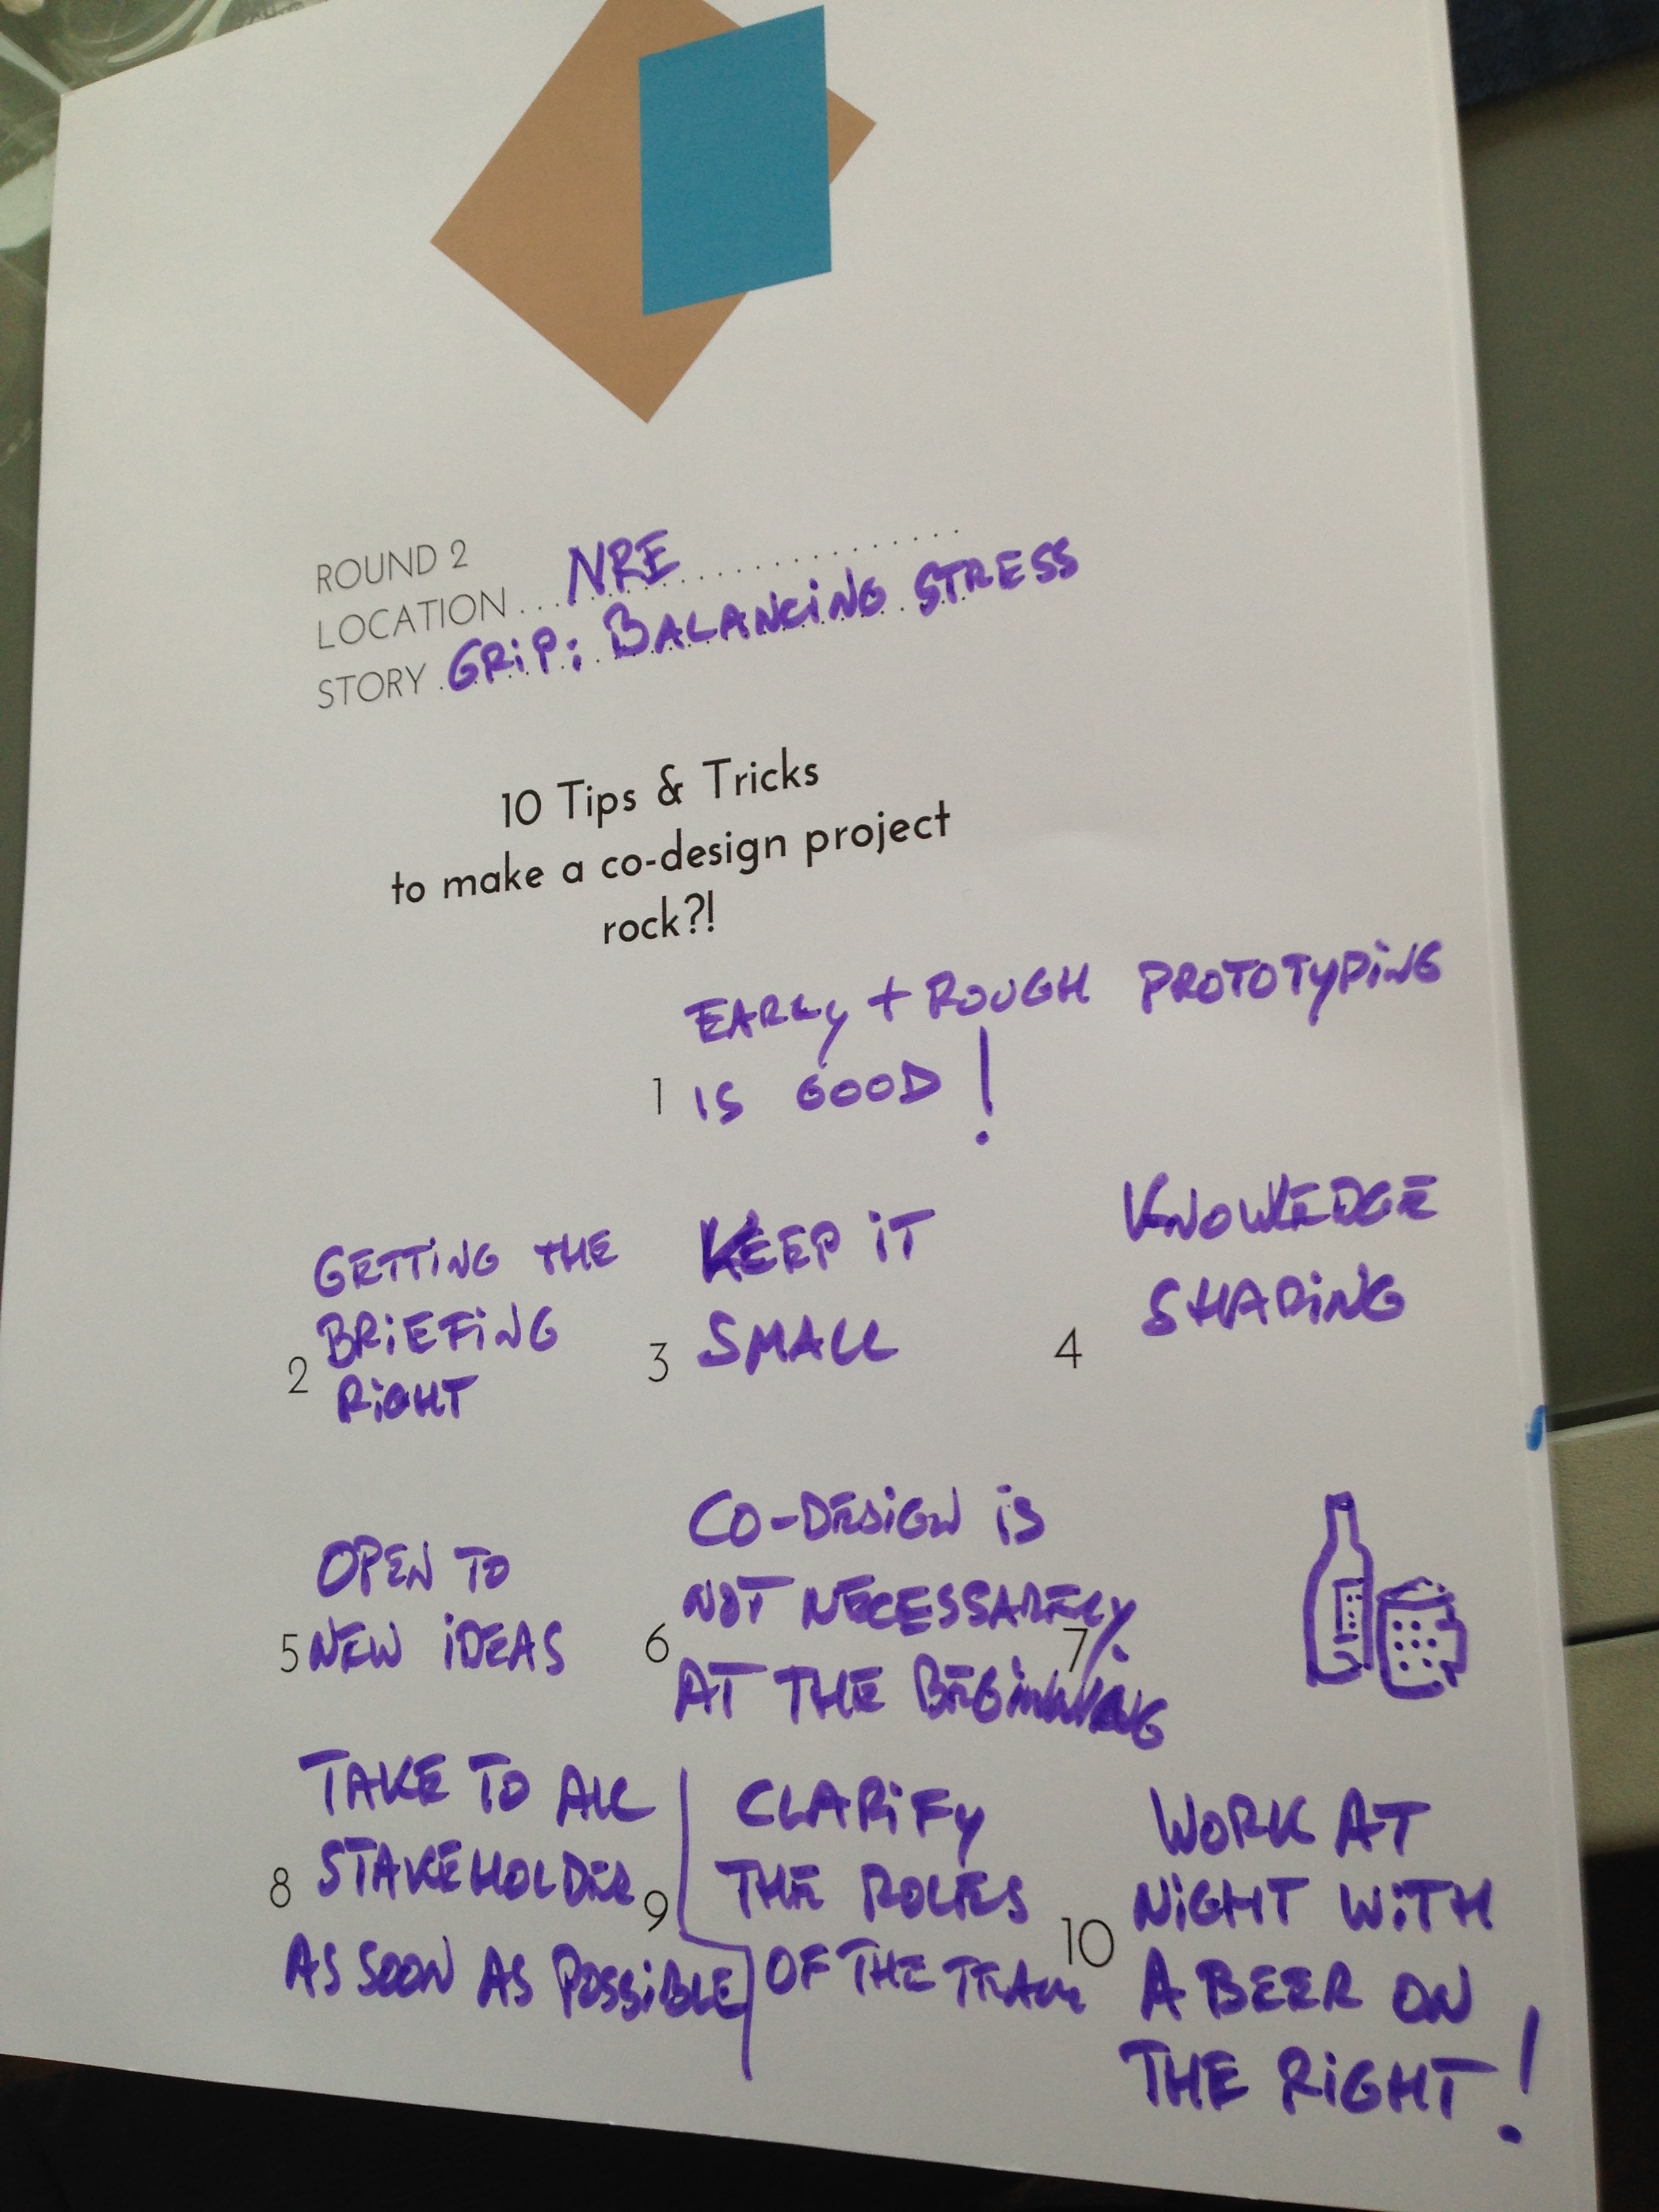 ROUND 2
LOCATION ... NRE ..............
STORY . GRiP: BALANCiNG STRESS
10 Tips & Tricks
to make a co-design project
rock?!
EARLy + ROUGH PROTOTyPiNG
1 IS GOOD !
GETTiNG THE
BRiEFiNG
2 RiGHT
KEEP iT
3 SMALL
KNOWLEDGE
SHARiNG
4
OPEN TO
5 NEW iDEAS
CO-DESiGN iS
NOT NECESSARELy
6
AT THE BEGiNNiNG
7
TAKE TO ALL
8 STAKEHOLDER
AS SOON AS POSSiBLE
CLARiFy
9 THE ROLES
OF THE TEAM
WORK AT
10 NiGHT WiTH
A BEER ON
THE RiGHT !